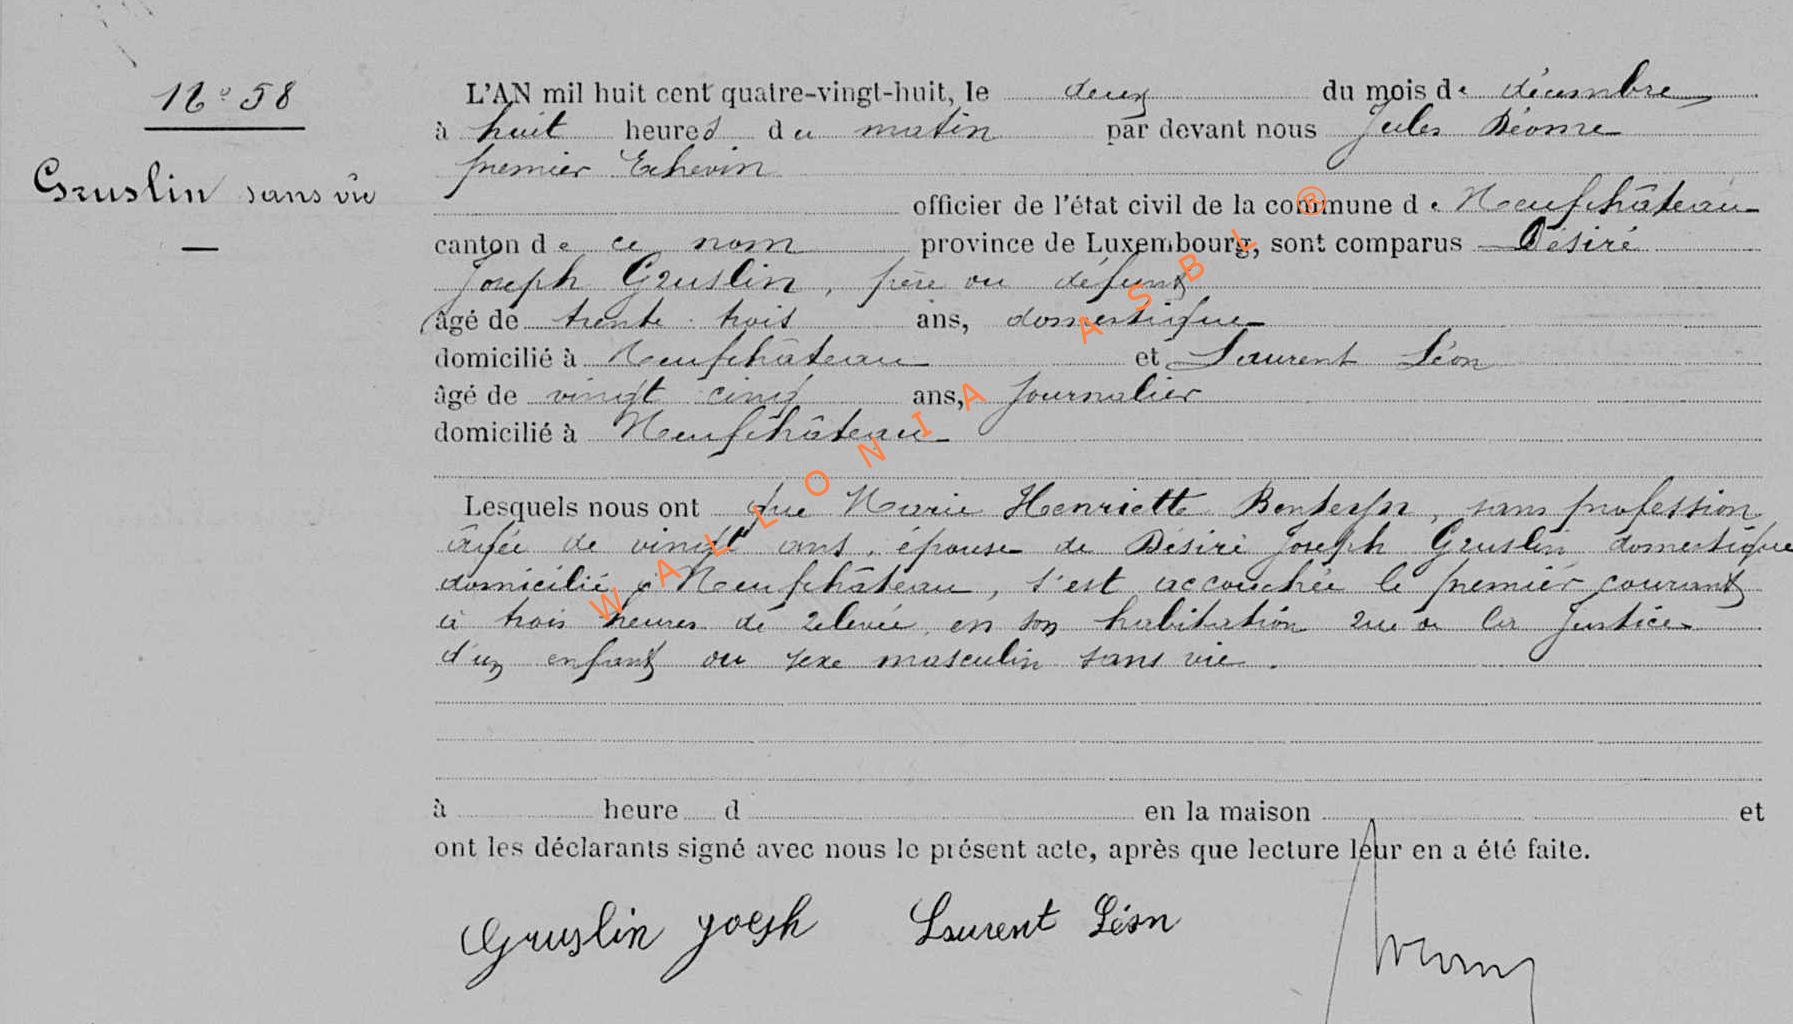 N° 58
Gruslin sans vie
L'AN mil huit cent quatre-vingt-huit, le deux du mois de décembre
à huit heures du matin par devant nous Jules
premier Echevin
officier de l'état civil de la commune de Neufchâteau
canton de ce nom province de Luxembourg, sont comparus Désiré
Joseph Gruslin, père du défunt
âgé de trente trois ans, domestique
domicilié à Neufchâteau et Laurent Léon
âgé de vingt cinq ans, journalier
domicilié à Neufchâteau
Lesquels nous ont que Marie Henriette, sans profession
âgée de vingt ans, épouse de Désiré Joseph Gruslin domestique
domicilié à Neufchâteau, s'est accouchée le premier courant
à trois heures de relevée en son habitation rue de la Justice
d'un enfant du sexe masculin sans vie.
à heure d en la maison et
ont les déclarants signé avec nous le présent acte, après que lecture leur en a été faite.
Gruslin Joseph Laurent Léon
WALLONIA ASBL ®